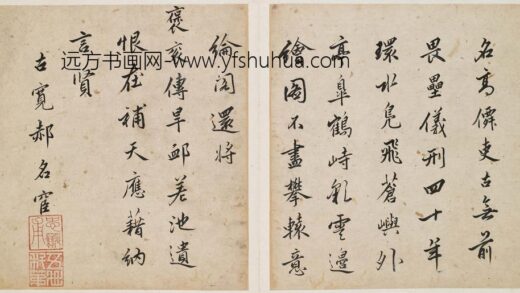 名高僊吏古無前
畏壘儀刑四十年
環水鳧飛蒼嶼外
亭皋鶴峙彩雲邊
繪圖不盡攀轅意
綸閣還將
褒袞傳早卹差池遺
恨在補天應藉納
言賢
古寬郝名宦
远方书画网 www.yfshuhua.com